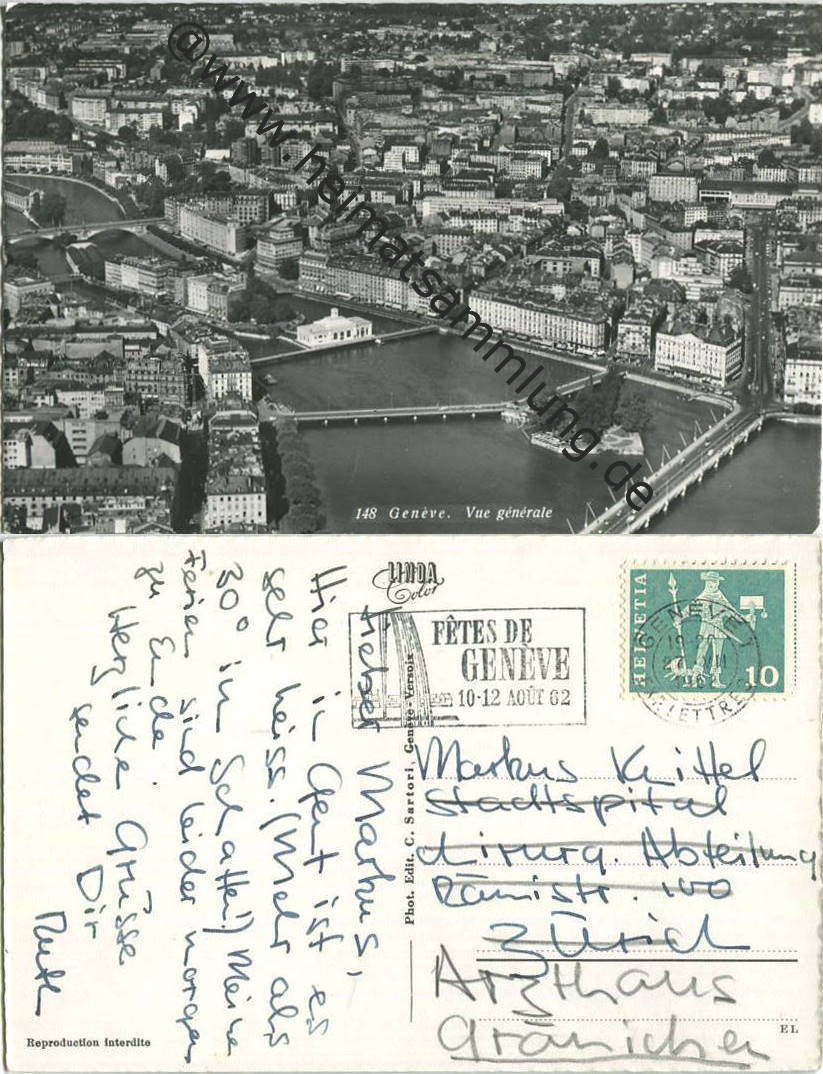 @www.heimatsammlung.de
148 Genève. Vue générale
LINDA
Color
Lieber Markus,
Hier in Genf ist es
sehr heiss. (Mehr als
30° im Schatten!) Meine
Ferien sind leider morgen
zu Ende.
Herzliche Grüsse
sendet Dir
Ruth
Reproduction interdite
Phot. Edit. C. Sartori, Genève-Versoix
FÊTES DE
GENÈVE
10-12 AOÛT 62
HELVETIA
10
GENÈVE 1
LETTRES
Markus Knittel
Stadtspital
chirurg. Abteilung
Rämistr. 100
Zürich
Arzthaus
Gränichen
EL